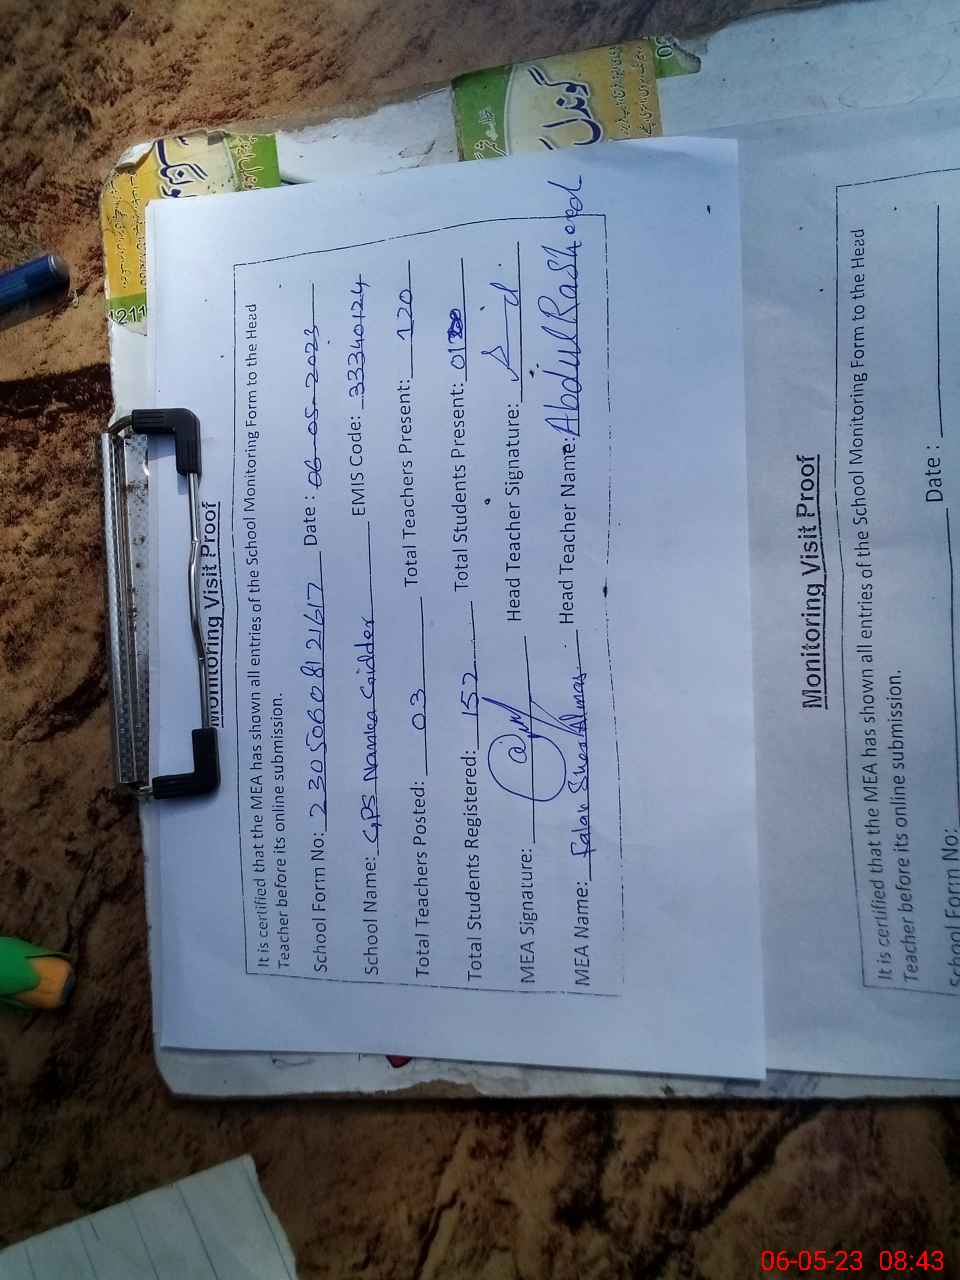 Monitoring Visit Proof
It is certified that the MEA has shown all entries of the School Monitoring Form to the Head
Teacher before its online submission.
School Form No: 23050608121617 Date : 06-05-2023
School Name: GPS Nanka Gidder EMIS Code: 33340124
Total Teachers Posted: 03 Total Teachers Present: 120
Total Students Registered: 152 Total Students Present: 01
MEA Signature: Head Teacher Signature:
MEA Name: Falak Sher Almas Head Teacher Name: Abdul Rasheed
Monitoring Visit Proof
It is certified that the MEA has shown all entries of the School Monitoring Form to the Head
Teacher before its online submission.
School Form No: Date :
گوندل
1211
06-05-23 08:43